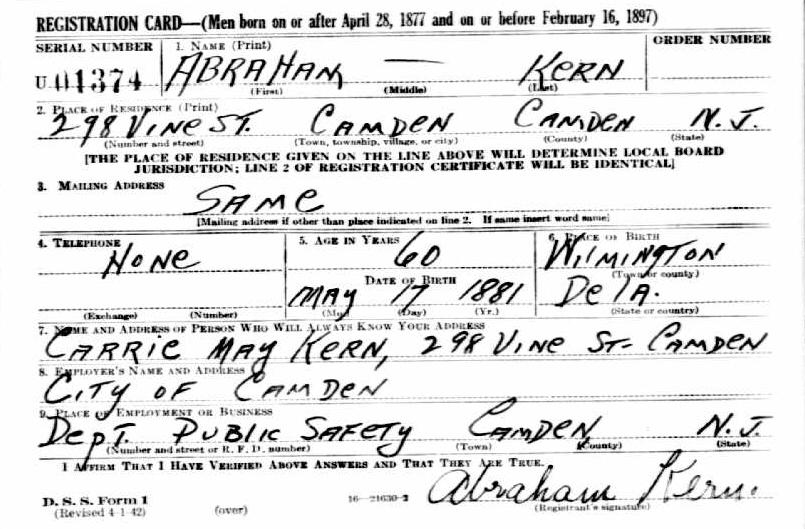 REGISTRATION CARD—(Men born on or after April 28, 1877 and on or before February 16, 1897)
SERIAL NUMBER 1. NAME (Print) ORDER NUMBER
U 01374 ABRAHAM — KERN
(First) (Middle) (Last)
2. PLACE OF RESIDENCE (Print)
298 VINE ST. CAMDEN CAMDEN N.J.
(Number and street) (Town, township, village, or city) (County) (State)
[THE PLACE OF RESIDENCE GIVEN ON THE LINE ABOVE WILL DETERMINE LOCAL BOARD
JURISDICTION; LINE 2 OF REGISTRATION CERTIFICATE WILL BE IDENTICAL]
3. MAILING ADDRESS
SAME
[Mailing address if other than place indicated on line 2. If same insert word same]
4. TELEPHONE 5. AGE IN YEARS 6. PLACE OF BIRTH
NONE 60 WILMINGTON
DATE OF BIRTH (Town or county)
MAY 17 1881 DELA.
(Exchange) (Number) (Mo.) (Day) (Yr.) (State or country)
7. NAME AND ADDRESS OF PERSON WHO WILL ALWAYS KNOW YOUR ADDRESS
CARRIE MAY KERN, 298 VINE ST- CAMDEN
8. EMPLOYER'S NAME AND ADDRESS
CITY OF CAMDEN
9. PLACE OF EMPLOYMENT OR BUSINESS
DEPT. PUBLIC SAFETY CAMDEN N.J.
(Number and street or R. F. D. number) (Town) (County) (State)
I AFFIRM THAT I HAVE VERIFIED ABOVE ANSWERS AND THAT THEY ARE TRUE.
D. S. S. Form 1 16—21630-2 Abraham Kern.
(Revised 4-1-42) (over) (Registrant's signature)